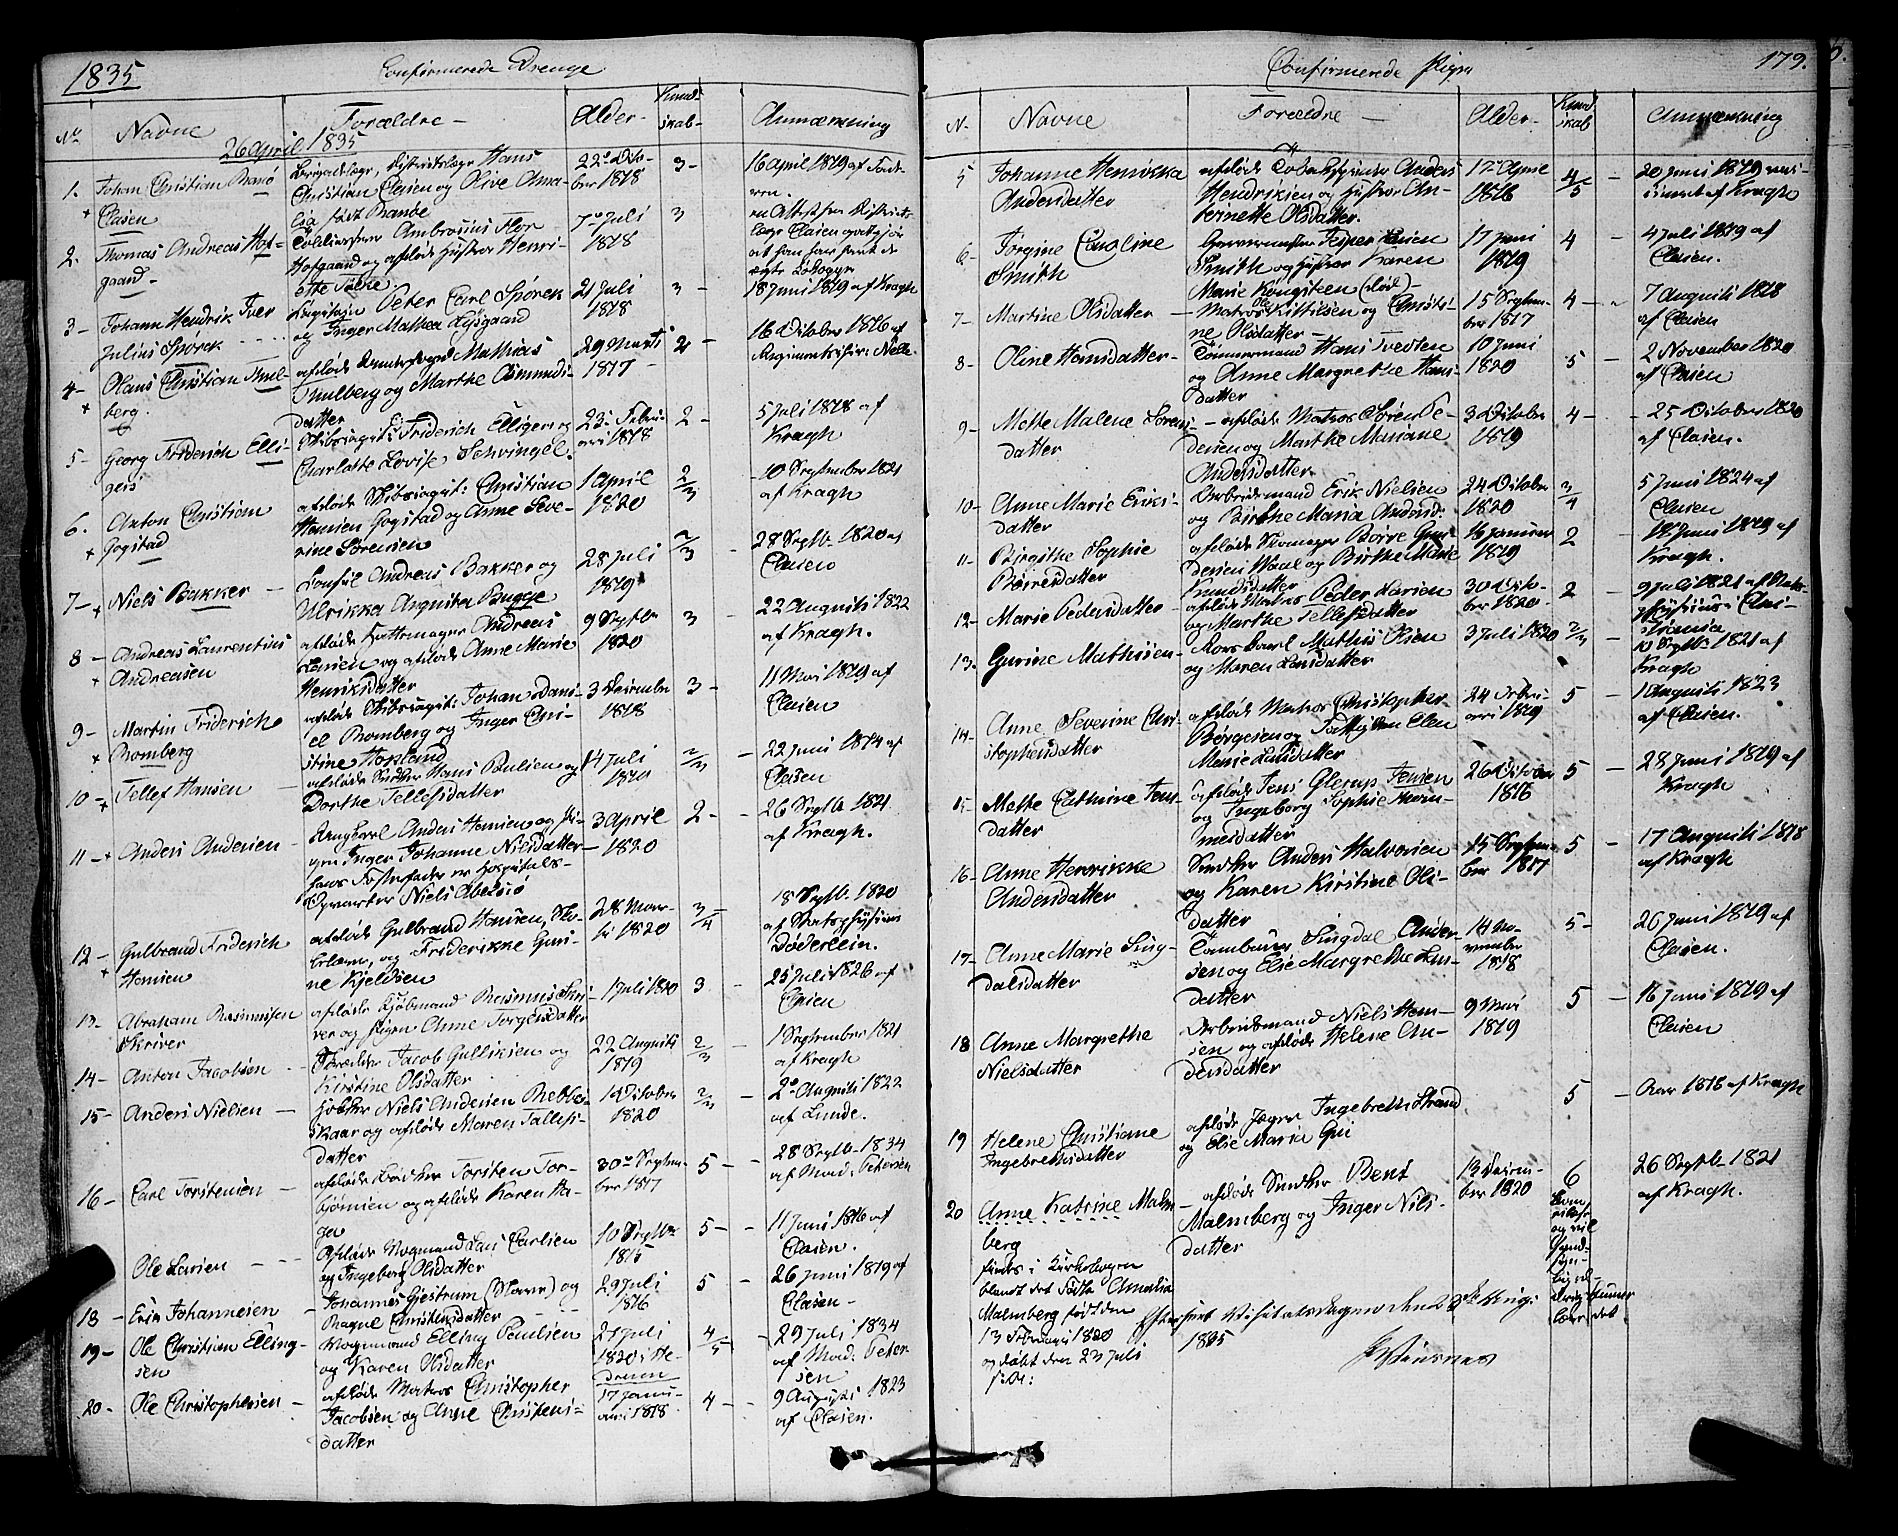 1835
Confirmerede Drenge
No
Navne
Forældre
Alder
Kundskab
Anmærkning
26 April 1835
1.
Johan Christian Ranø
Clasen
Christian Clasen og Olive Ama-
lia født Ranøe
22de Octo-
ber 1818
3
16 April 1819 af Fade-
ren.
2.
Thomas Andreas Hof-
gaard
Ambrosius Flor
Hofgaard og afdøde Hustroe Henri-
ette Falke
7de Juli
1818
3
18 Juni 1819 af Kragh
3
Johann Hendrik Iver
Julius Spørck
Peter Carl Spørck
og Inger Mathea Lysgaard
21 Juli
1818
3
16 October 1816 af
4
Olaus Christian Thul-
berg.
Mathias
Thulberg og Marthe Osmunds-
datter
29 Marti
1817
2
5
Georg Friderich Elli-
geis
Skibscapt: Friderich Elliger og
Charlotte Lovise Schvingel.
23de Febru-
ari 1818
2
5 Juli 1818 af
Kragh
6.
Anton Christian
Gogstad
afdøde Skibscapt: Christian
Hansen Gogstad og Anne Seve-
rine Sørensen
1 April
1820
2/3
10 September 1821
af Kragh
7
Niels Bakker
Consul Andreas Bakker og
Ulrikka Augusta Bugge
28 Juli
1819
2/3
28 Septb. 1820 af
Clasen
8
Andreas Laurentius
Andreasen
afdøde Hattemager Andreas
Larsen og afdøde Anne Marie
Henriksdatter
9 Septbr
1820
3
22 Augusti 1822
af Kragh.
9
Martin Friderich
Romberg
afdøde Skibscapt: Johan Dani-
el Romberg og Inger Chri-
stine Hopland
3 December
1818
3
11 Mai 1819 af
Clasen
10
Tellef Hansen
afdøde Snedker Hans Poulsen og
Dorthe Tellefsdatter
14 Juli
1820
2/3
22 Juni 1874 af
Clasen
11
Anders Andersen
Anders Hansen og Pi-
gen Inger Johanne Nilsdatter
hans Fosterfader er Hospitals-
Opvarter Niels Abelsø
3 April
1820
2
26 Septb. 1821
af Kragh.
12
Gulbrand Friderich
Hansen
afdøde Gulbrand Hansen,
og Friderikke Guri-
ne Kjeldsen
28 Mar-
ti 1820
3/4
18 Septb. 1820
af Stadsphysicus
Døderlein.
13
Abraham Rasmussen
Skriver
afdøde Kjøbmand Rasmus Skri-
ver og Pigen Anne Torgersdatter
1 Juli 1820
3
25 Juli 1826 af
Clasen
14
Anton Jacobsen
Jacob Gulliksen og
Kirstine Olsdatter
22 Augusti
1819
2/3
1 September 1821
af Kragh
15
Anders Nielsen
Niels Andersen Rebbe-
skaar og afdøde Maren Tallefs-
datter
1 October
1820
2/3
2de Augusti 1822
af Lunde.
16
Carl Torstensen
afdøde Bødker Torsten Tor-
bjørnsen og afdøde Karen Aa-
ga
30te Septem-
ber 1817
5
28 Septb. 1834
af Mad. Petersen
Ole Larsen
Afdøde Vognmand Lars Carlsen
og Ingeborg Olsdatter
10 Septbr
1815
5
11 Juni 1816 af
Clasen.
18
Eric Johannesen
Johannes Gjestrum (Slave) og
Ragne Christensdatter
29 Juli
1816
5
26 Juni 1819 af
Clasen
19
Ole Christian Elling-
sen
Vognmand Elling Poulsen
og Karen Olsdatter
27 Juli
1820
4/5
29 Juli 1834
af Mad: Peter-
sen
20
Ole Christophersen
afdøde Matros Christopher
Jacobsen og Anne Christens-
datter
17 Janu-
ari 1818
4
9 Augusti 1823
af Clasen.
Confirmerede Piger
179.
N.
Navne
Forældre
Alder
Kundskab
Anmærkning
5
Johanne Henrikka
Andersdatter
afdøde Tobakspinder Anders
Hendriksen og Hustroe An-
bernette Olsdatter.
17de April
1816
4/5
20 Juni 1819
af Kragh
6
Torgine Caroline
Smith
Jesper Larsen
Smith og Hustroe Karen
Marie Kongsteen (død)
17 Juni
1819
4
4 Juli 1819 af
Clasen.
7
Martine Olsdatter
Matros Ole Kittilsen og Christi-
ne Olsdatter
15 Septem-
ber 1817
4
7 Augusti 1818
af Clasen
8
Oline Hansdatter
Tømmermand Hans Tvedten
og Anne Margrethe Hans-
datter
10 Juni
1820
5
2 November 1820
af Clasen
9
Mette Malene Sørens-
datter
afdøde Matros Søren Pe-
dersen og Marthe Mariane
Andersdatter
3 October
1819
4
25 October 1820
af Clasen.
10
Anne Marie Eriks-
datter
Arbeidsmand Erik Nielsen
og Birthe Maria Andersd:
24 October
1820
3/4
5 Juni 1824 af
Clasen
11
Birgithe Sophie
Børresdatter
afdøde Skomager Børre Gun-
dersen Waal og Birthe Marie
Knudsdatter
16 Januar
1819
2
18 Juni 1819 af
Kragh.
12
Marie Pedersdatter
afdøde Matros Peder Larsen
og Marthe Tellefsdatter
30 Octo-
ber 1820
2
9 Juli 1821 af
13.
Gurine Mathisen
Mathis Olsen
og Maren Larsdatter
3 Juli 1820
2/3
10 Septb. 1821 af
Kragh
14
Anne Severine Chri-
stophersdatter
afdøde Matros Christopher
Børgesen og Ellen
Marie Larsdatter
24 Febru-
ari 1819
5
1 Augusti 1823
af Clasen.
15
Mette Cathrine Jens-
datter
afdøde Jens Glerup Jensen
og Ingeborg Sophie Ham-
mersdatter
26 October
1816
5
28 Juni 1819 af
Kragh
16
Anne Henrikke
Andersdatter
Snedker Anders Halvorsen
og Karen Kirstine Ols-
datter
15 Septem-
ber 1817
5
17 Augusti 1818
af Kragh
17
Anne Marie Sing-
dalsdatter
Tambour Singdal Ander-
sen og Elie Margrethe Lars-
datter
14 No-
vember
1818
5
26 Juni 1819 af
Clasen.
18
Anne Margrethe
Nielsdatter
Arbeidsmand Niels Han-
sen og afdøde Helene An-
dersdatter
9 Mai
1819
5
16 Juni 1819 af
Clasen
19
Helene Christiane
Ingebretsdatter
afdøde Jæger Ingebreth Strand
og Elie Maria Gui
5
Aar 1818 af Kragh
20
Anne Katrine Malm-
berg
afdøde Snedker Bent
Malmberg og Inger Niels-
datter
13 Decem-
ber 1820
6
26 Septb. 1821
af Kragh.
findes i Kirkebogen
blandt det Fødte Amalia
Malmberg født den
13 Februari 1820
og døbt den 23 Juli
s: A:
1835